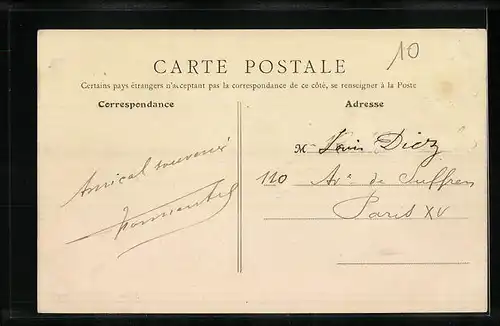 10
CARTE POSTALE
Certains pays étrangers n'acceptant pas la correspondance de ce côté, se renseigner à la Poste
Correspondance
Adresse
Amical souvenir
M Louis Diez
110 Av. de Suffren
Paris XV